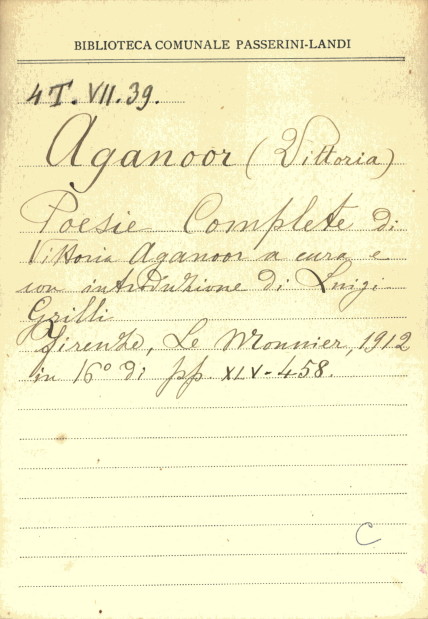 BIBLIOTECA COMUNALE PASSERINI-LANDI
4T. VII. 39.
Aganoor (Vittoria)
Poesie Complete di
Vittoria Aganoor a cura e
con introduzione di Luigi
Grilli
Firenze, Le Monnier, 1912
in 16° di pp XLV-458.
C